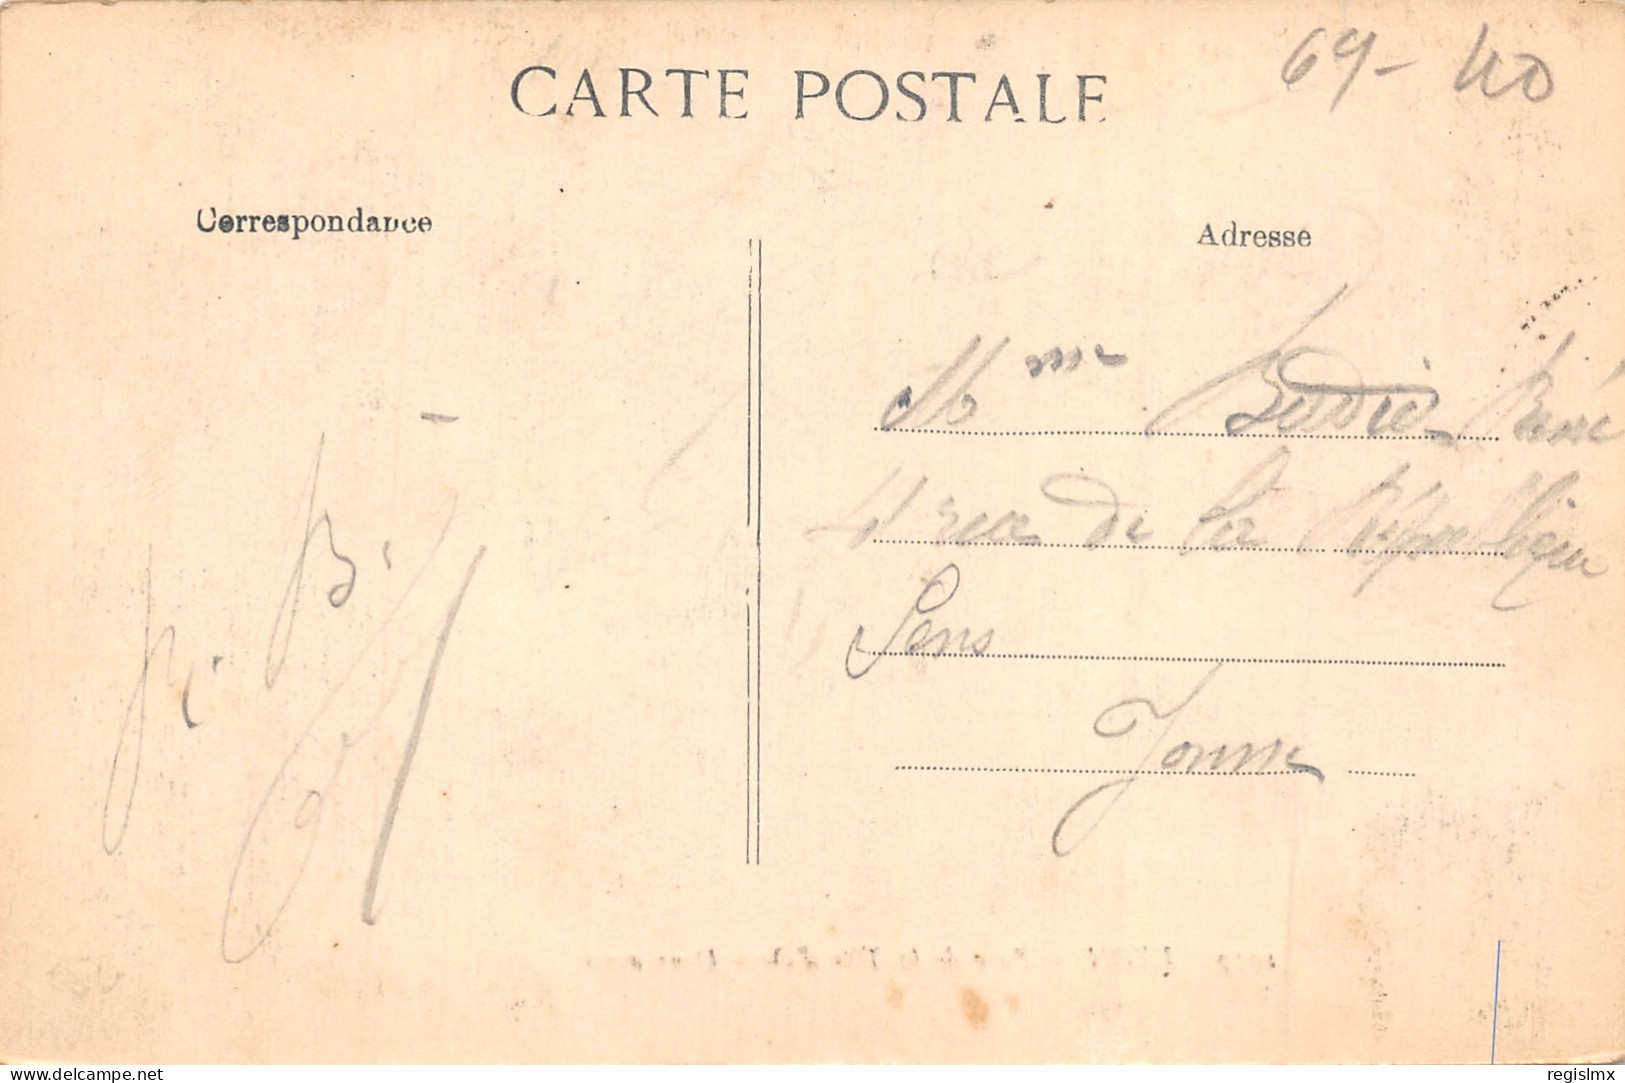 CARTE POSTALE
69-40
Correspondance
Adresse
Mme
4 rue de la République
Sens
Yonne
R. B.
delcampe.net
regislmx